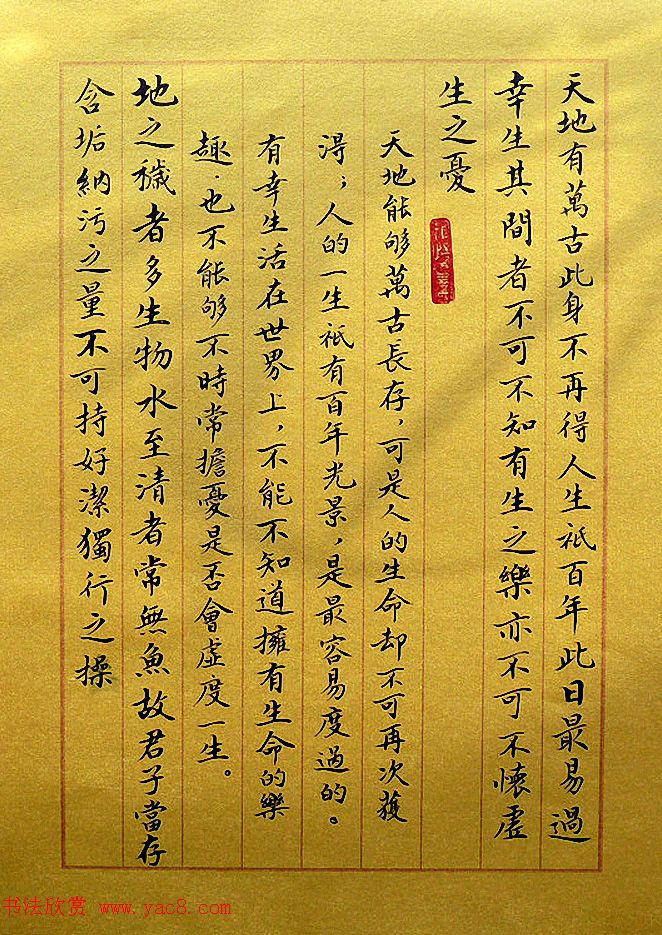 天地有萬古此身不再得人生祇百年此日最易過
幸生其間者不可不知有生之樂亦不可不懷虛
生之憂
天地能够萬古長存，可是人的生命却不可再次獲
得；人的一生祇有百年光景，是最容易度過的。
有幸生活在世界上，不能不知道擁有生命的樂
趣．也不能够不時常擔憂是否會虛度一生。
地之穢者多生物水至清者常無魚故君子當存
含垢納污之量不可持好潔獨行之操
书法欣赏 www.yac8.com